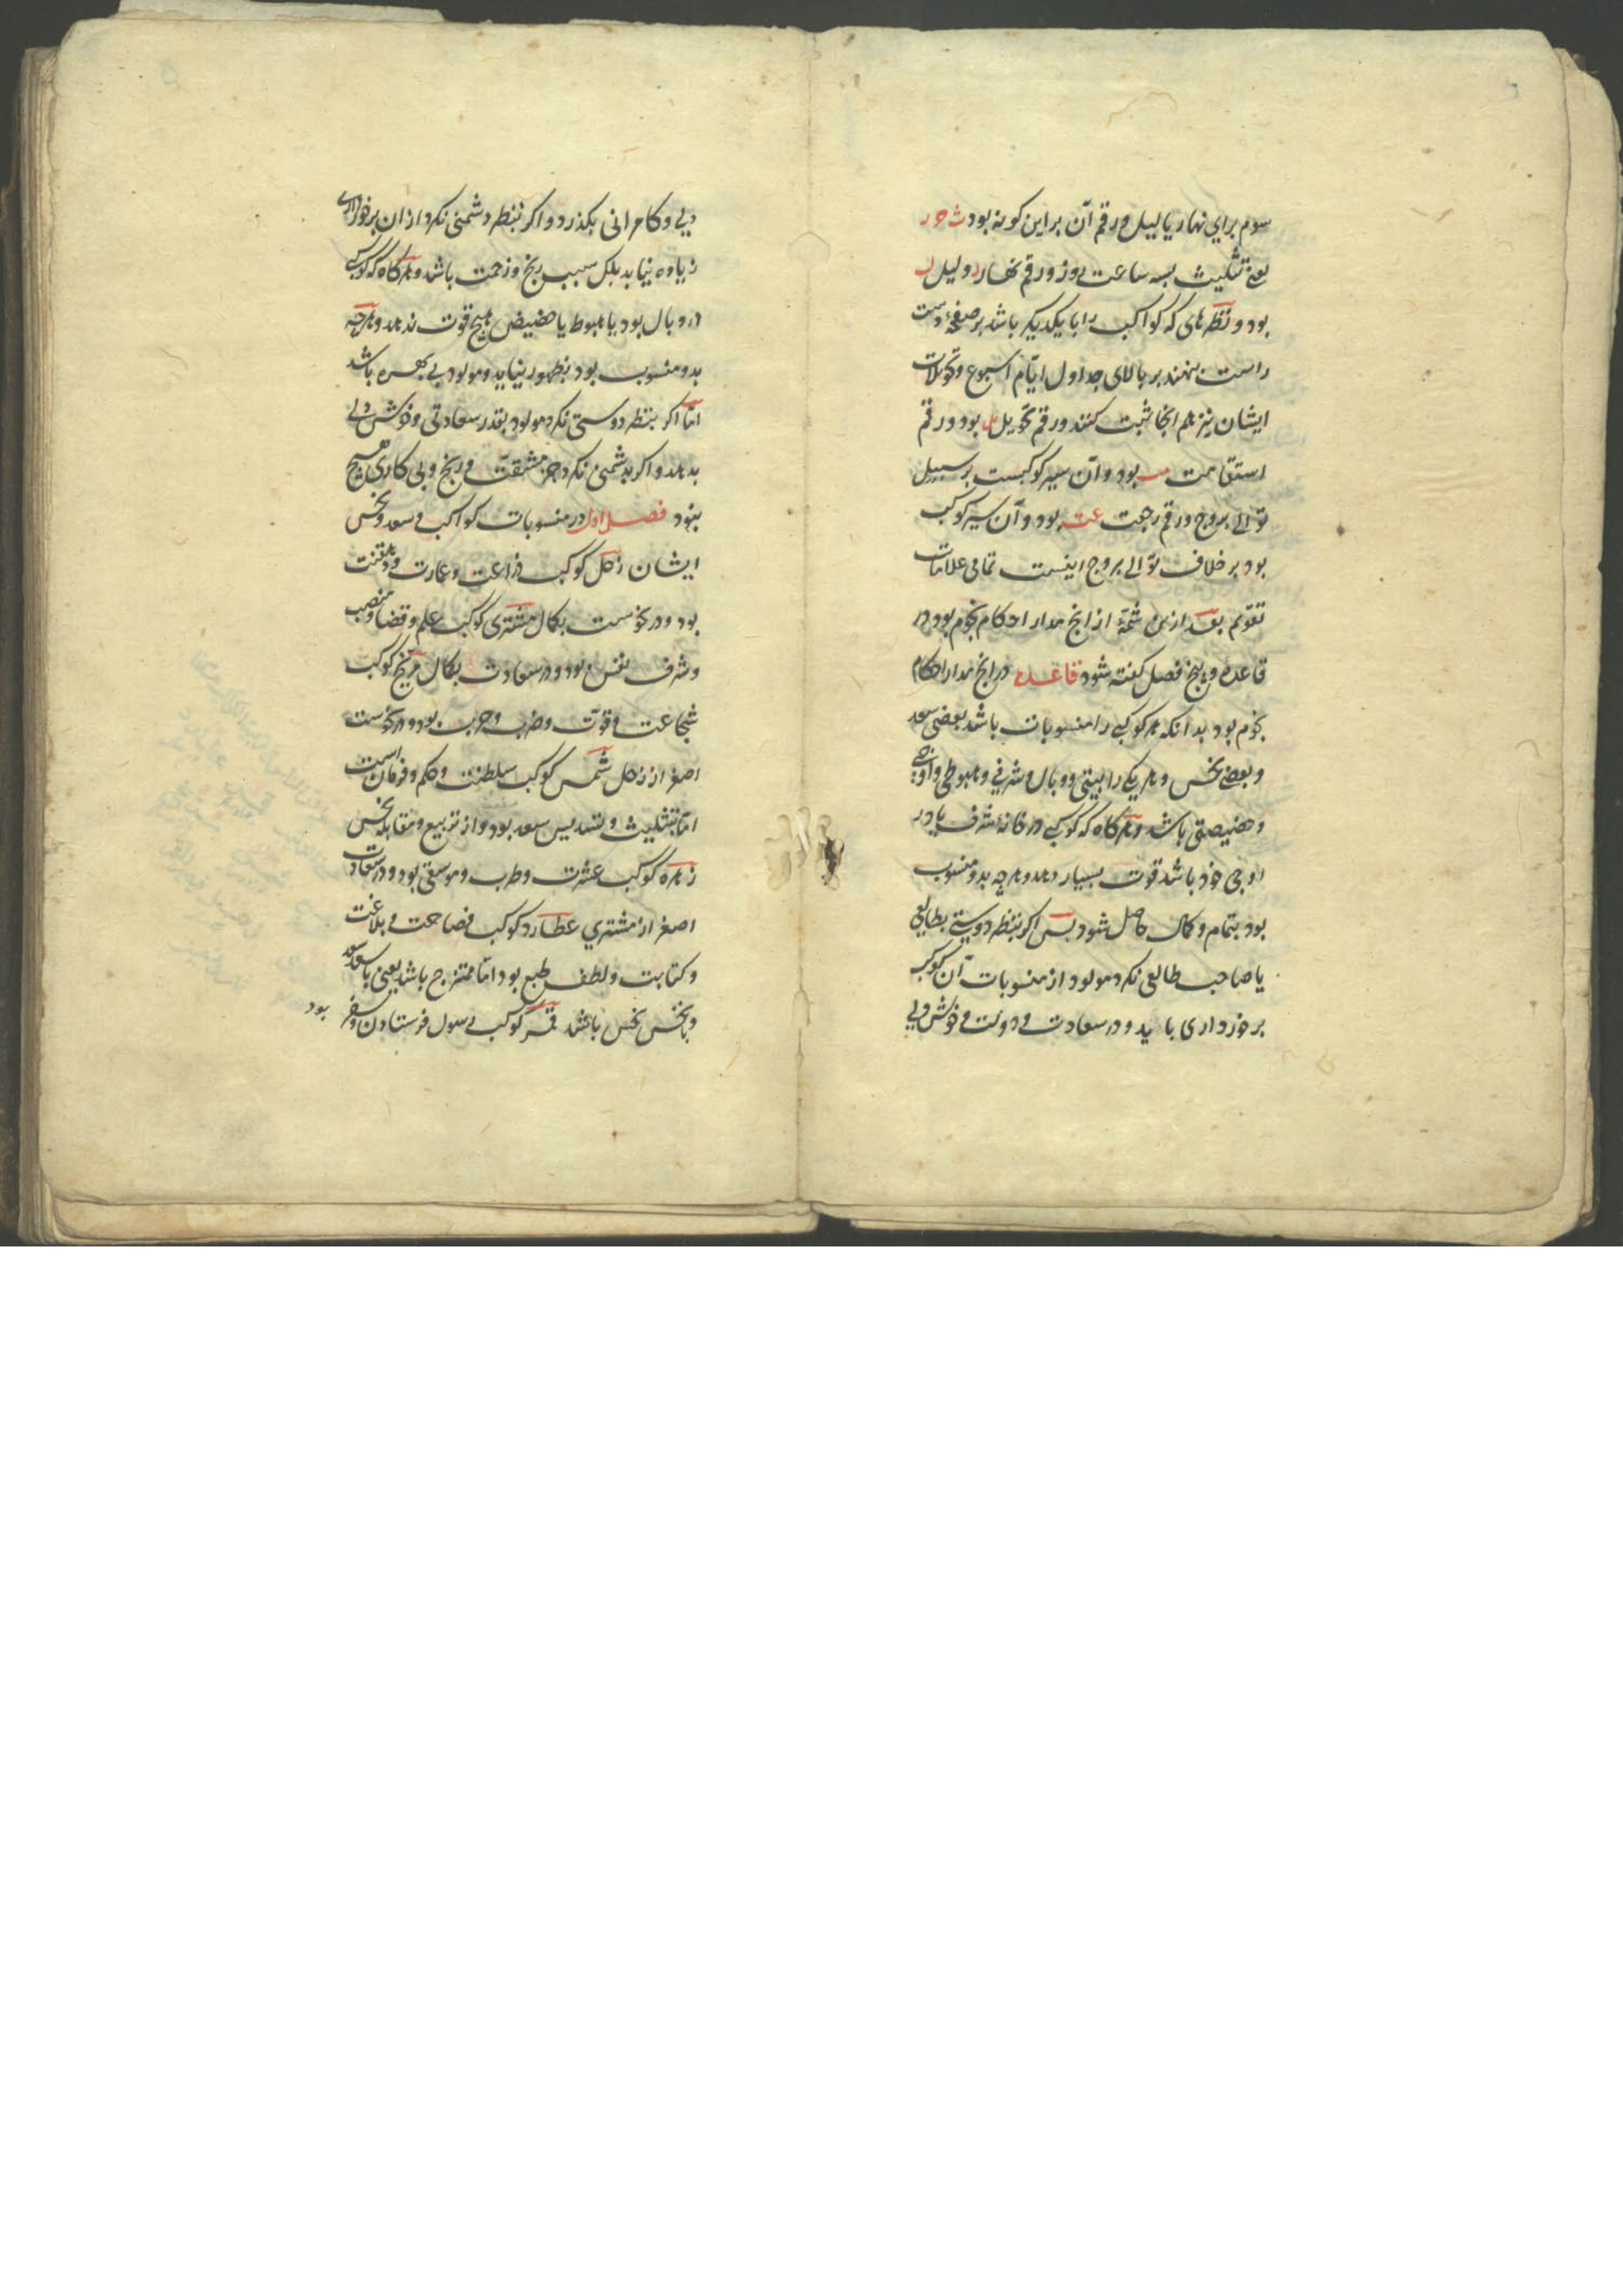 سوم برای نهار یا لیل و رقم آن براین کونه بود ث ح ر
یعنی تثلیث بسه ساعت روز و رقم نهار ر و لیل ل
بود و نظرهای که کواکب را با یکدیکر باشد بر صفحهٔ دست
راست بنهند بر بالای جداول ایّام اسبوع و تحویلات
ایشان نیز هم انجا ثبت کنند و رقم تحویل ل بود و رقم
استقامت مت بود و آن سیر کوکبست بر سبیل
توالی بروج و رقم رجعت عت بود و آن سیر کوکب
بود بر خلاف توالی بروج اینست تمامی علامات
تقویم بعد ازین شمهٔ از انچ مدار احکام نجوم بود در
قاعده و پنج فصل کفته شود قاعده در انچ مدار احکام
نجوم بود بدانکه هر کوکبی را منسوبات باشد بعضی سعد
و بعضی نحس و هر یکی را بیتی و وبال و شرفی و هبوطی و اوجی
و حضیضی باشد و هرکاه که کوکبی در خانهٔ شرف یا در
اوجی خود باشد قوت بسیار دهد و هرچه بدو منسوب
بود بتمام و کمال حاصل شود پس اکر بنظر دوستی بطالعی
یا صاحب طالعی نکرد مولود از منسوبات آن کوکب
برخورداری یابد و در سعادت و دولت و خوش دلی
دلی و کامرانی بکذرد و اکر بنظر دشمنی نکرد از ان برخورداری
زیاده نیابد بلکه سبب رنج و زحمت باشد و هرکاه که کوکبی
در وبال بود یا هبوط یا حضیض هیچ قوت ندهد و هرچه
بدو منسوب بود بظهور نیاید و مولود بی بهره باشد
امّا اکر بنظر دوستی نکرد مولود بقدر سعادتی و خوش دلی
بدهد و اکر بدشمنی نکرد جز مشقت و رنج و بی کاری هیچ
نبود فصل اول در منسوبات کواکب و سعد و نحس
ایشان زحل کوکب زراعت و عمارت و دهقنت
بود و در نحوست بکمال مشتری کوکب علم و قضا و منصب
و شرف نفس بود و در سعادت بکمال مریخ کوکب
شجاعت و قوّت و ضرب و حرب بود و در نحوست
اصغر از زحل شمس کوکب سلطنت و حکم و فرمان است
امّا بتثلیث و تسدیس سعد بود و از تربیع و مقابله نحس
زهره کوکب عشرت و طرب و موسقی بود و در سعادت
اصغر از مشتری عطارد کوکب فصاحت و بلاغت
و کتابت و لطف طبع بود امّا ممتزج باشد یعنی با سعد سعد
و با نحس نحس باشد قمر کوکب رسول فرستادن و سفر بود